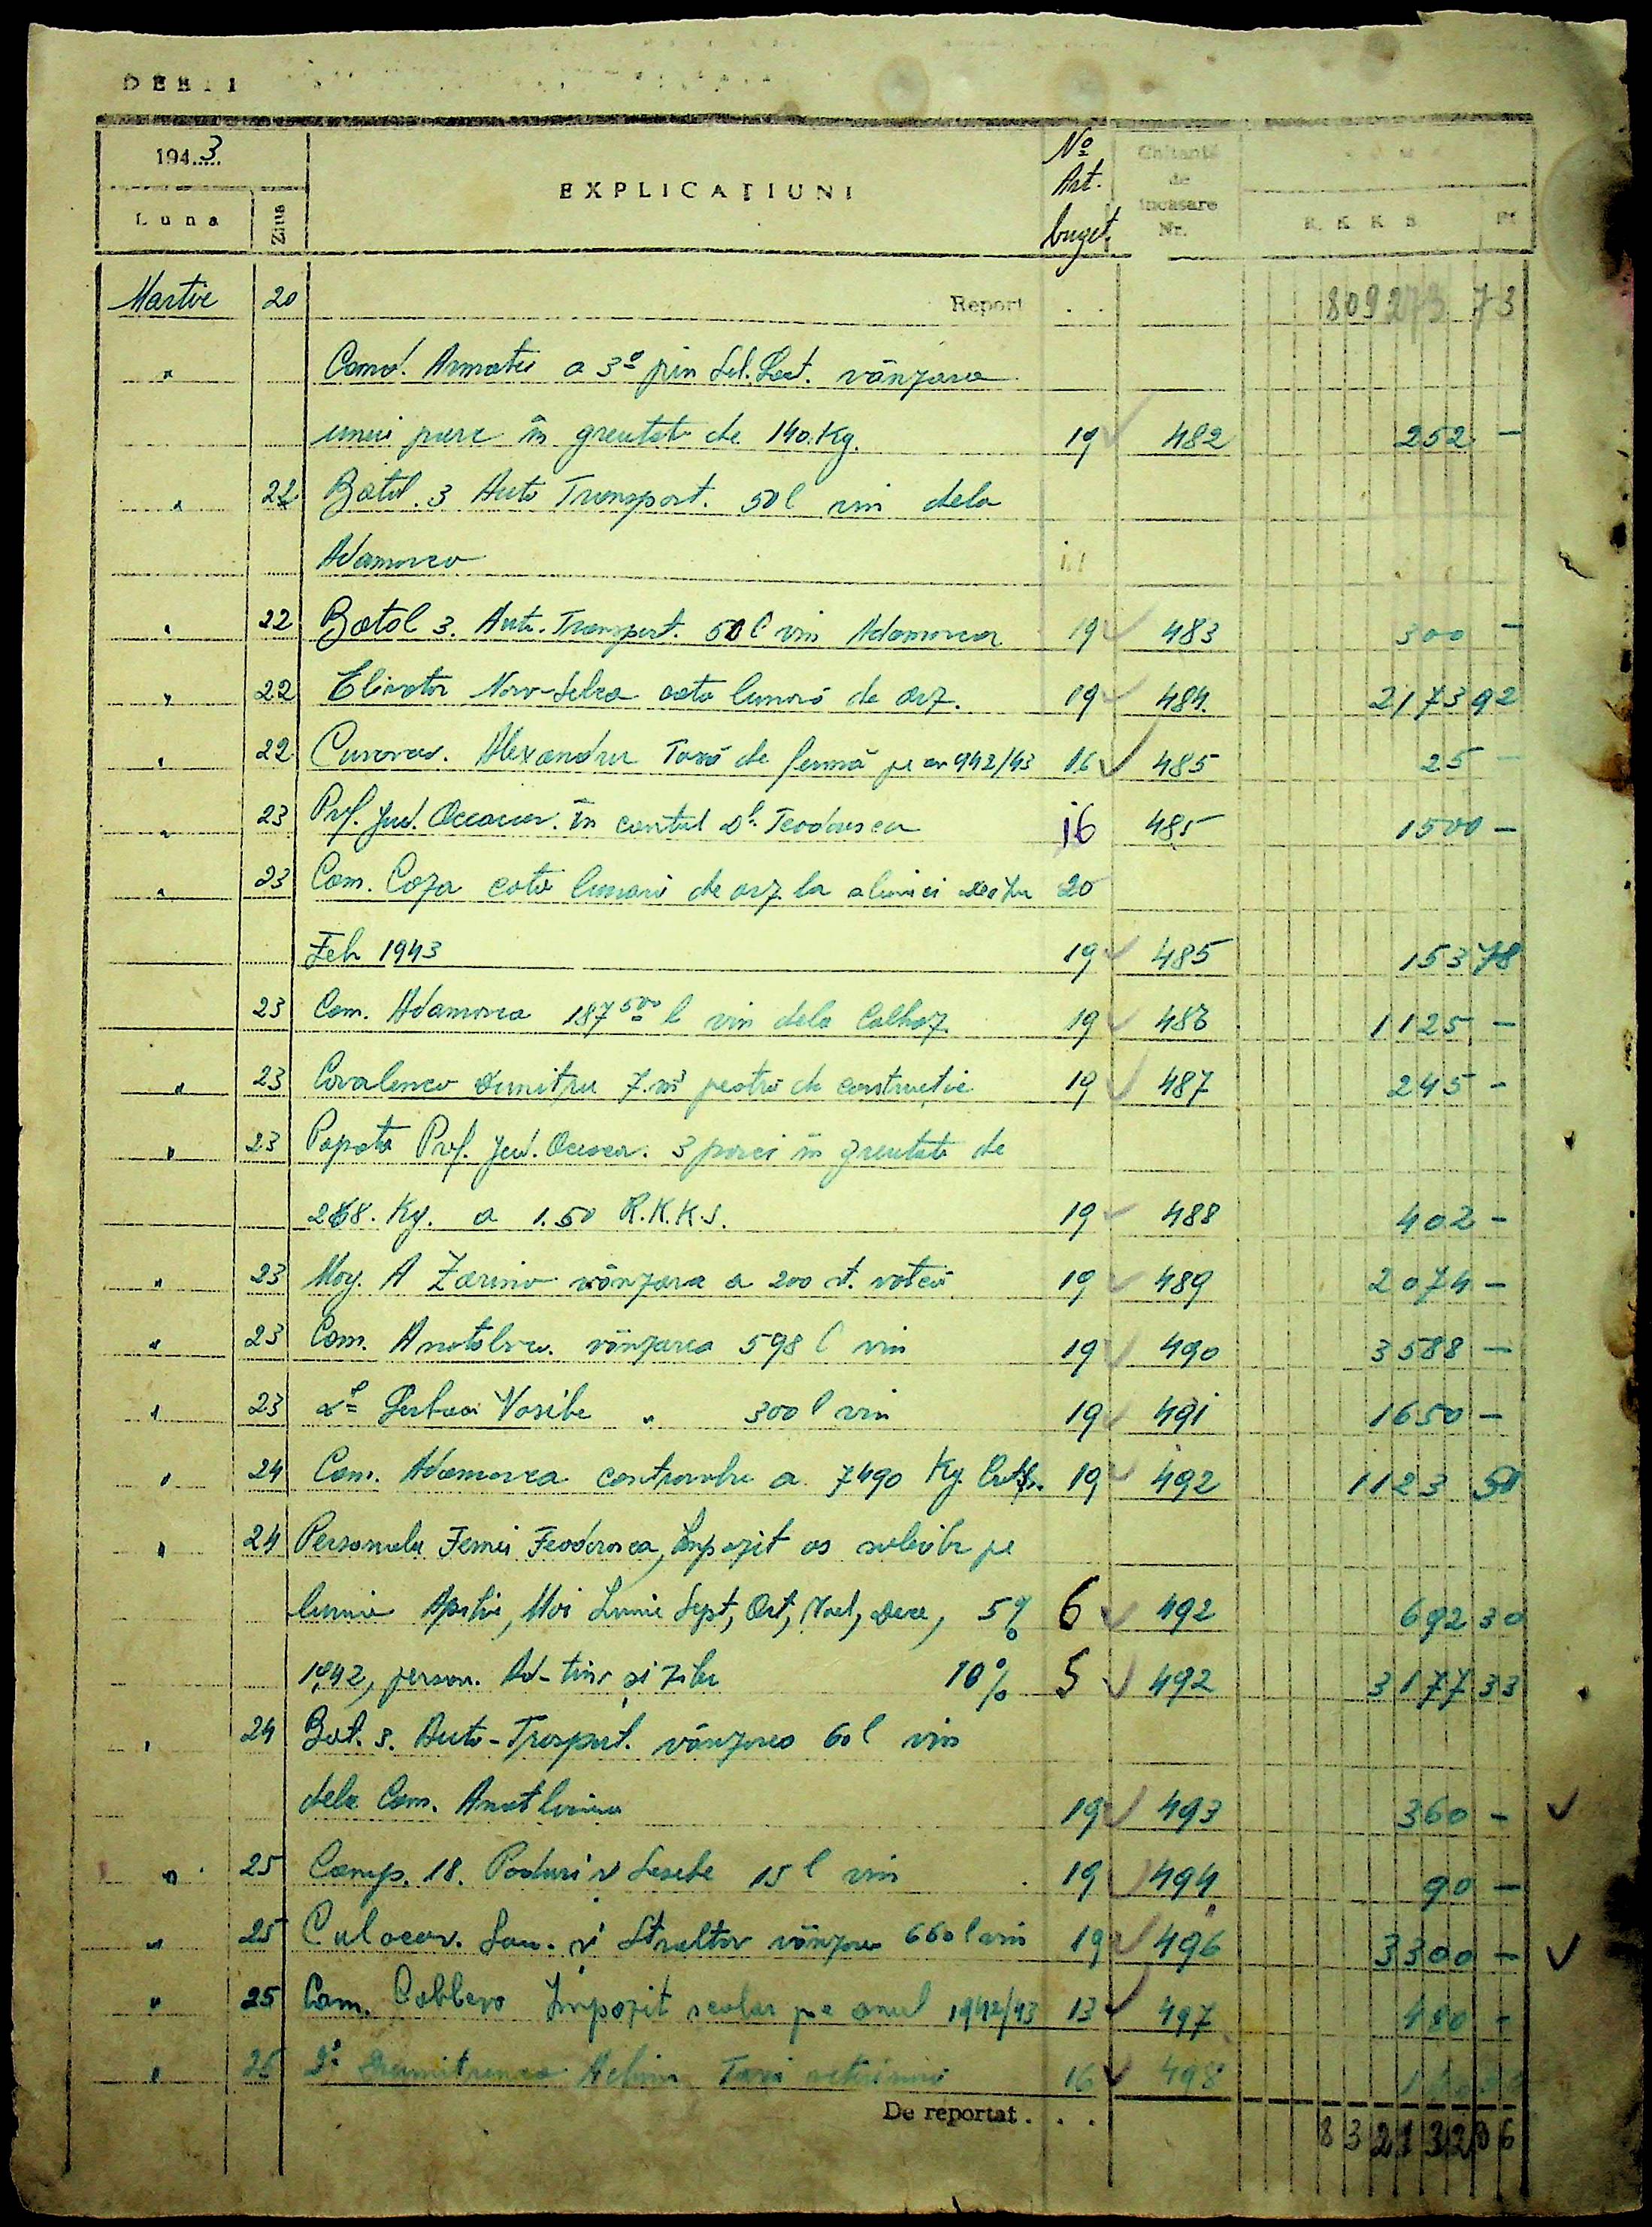 DEBIT
1943
Luna Ziua EXPLICAŢIUNI No Art. buget. Chitanţă de incasare Nr. R. K. K. S. Pf
Martie 20 Report . . 809273 73
" Comd. Armatei a 3a prin vânzarea
unui porc în greutate de 140 Kg. 19 482 252 -
" 22 Batol. 3 Auto Transport. 50 l vin dela
Adamovca
" 22 Batol 3. Auto. Transport. 50 l vin Adamovca 19 483 300 -
" 22 Elivator cota lunară de orz. 19 484 2173 92
" 22 Alexandru Taxă de fermă pe an 942/43 16 485 25 -
" 23 Pref. Jud. Oceacov. în contul Teodorescu 16 485 1500 -
" 23 Com. Coza cota lunară de orz la 20
Feb 1943 19 485 153 78
23 Com. Adamovca 187 500 l vin dela Colhoz 19 486 1125 -
" 23 Covalenco Dumitru 7 m3 peatră de construcţie 19 487 245 -
" 23 Popota Pref. Jud. Oceacov. 3 porci în greutate de
268. Kg. a 1.50 R.K.K.S. 19 488 402 -
" 23 Mag. A Zarino vânzarea a 200 st. votcă 19 489 2074 -
" 23 Com. Anatolievca vânzarea 598 l vin 19 490 3588 -
" 23 Vasile " 300 l vin 19 491 1650 -
" 24 Com. Adamovca a 7490 Kg 19 492 1123 50
" 24 Personalul Fermei Feodorovca, Impozit pe
lunie Aprilie, Mai Iunie Sept, Oct, Noe, Dece, 5% 6 492 692 30
1942, person. Ad-tiv și zile 10% 5 492 3177 33
" 24 Bat. 3. Auto-Trasport. vânzarea 60 l vin
dela Com. 19 493 360 -
" 25 Comp. 18. Poduri 15 l vin 19 494 90 -
" 25 vânzare 660 l vin 19 496 3300 -
" 25 Com. Coblevo Impozit scolar pe anul 1942/43 13 497 480 -
" 25 Taxă 16 498
De reportat . . . 832132 06